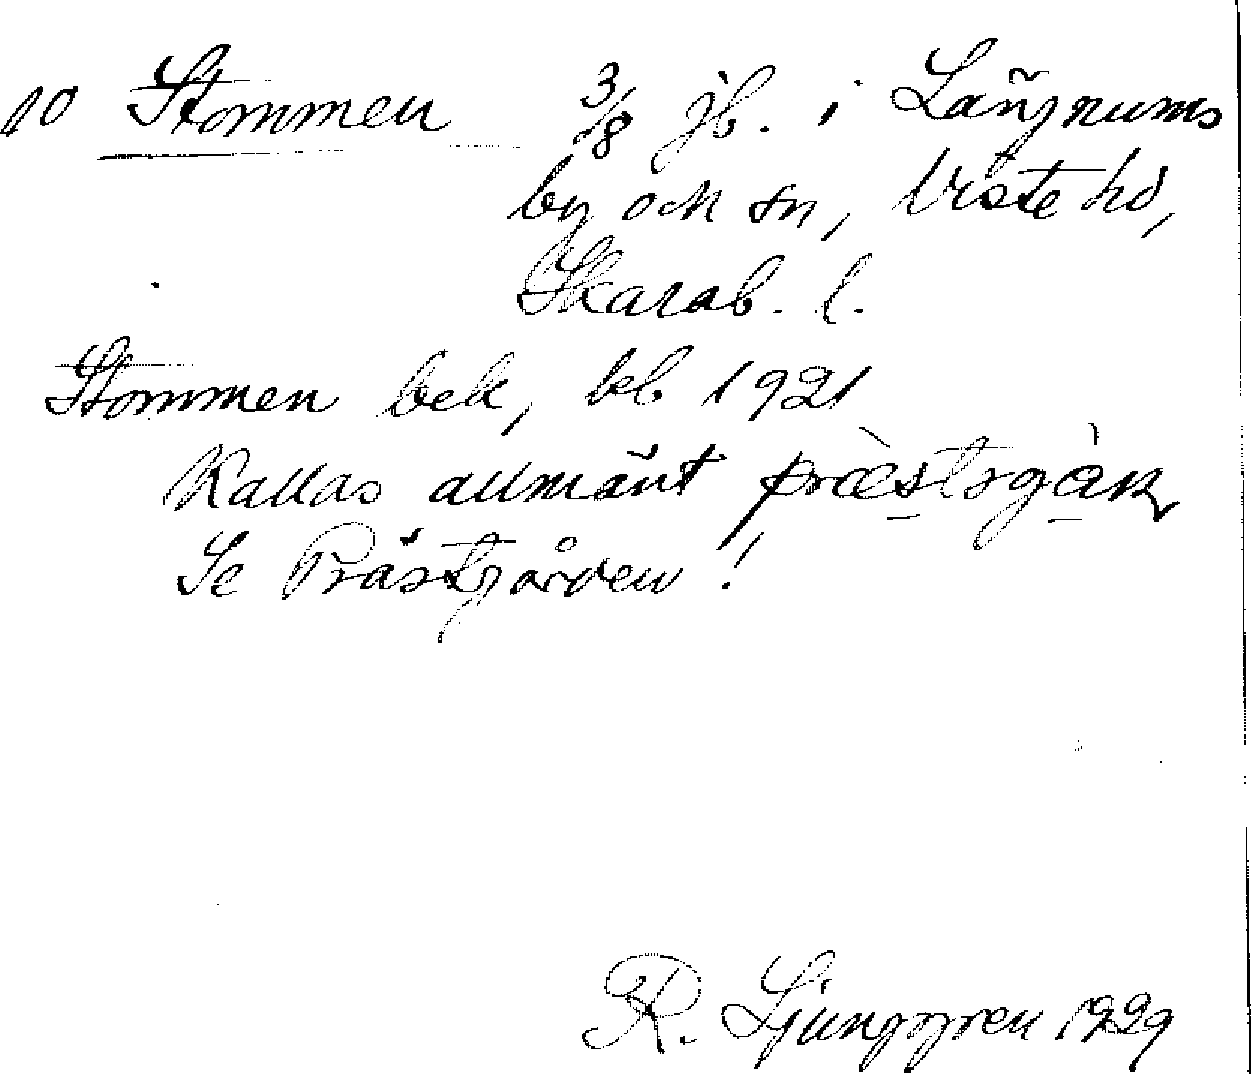 10 Stommen 3/8 jb. i Längnums
by och sn, Viste hd,
Skarab. l.
Stommen bek, kb 1921
Kallas allmänt præ̀stsgàɳ
Se Prästgården!
R. Ljunggren 1929